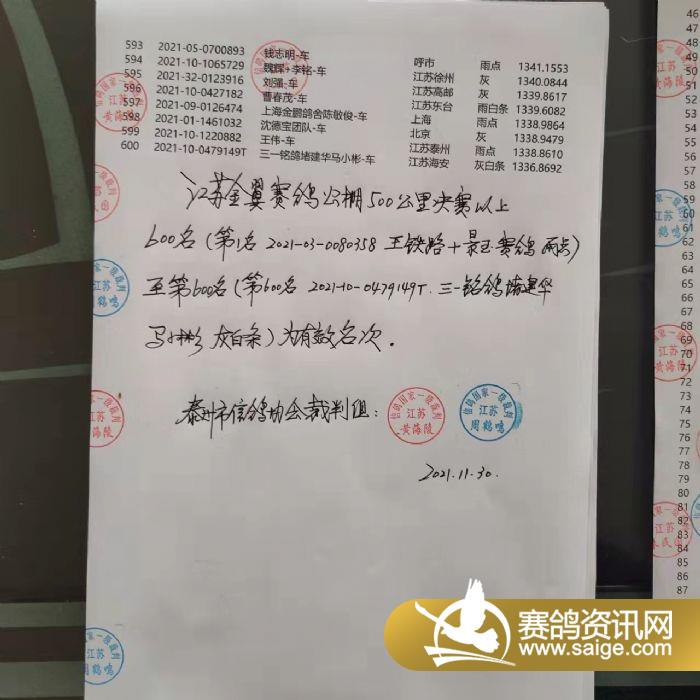 593 2021-05-0700893 钱志明-车 呼市 雨点 1341.1553
594 2021-10-1065729 魏辉+李铭-车 江苏徐州 灰 1340.0844
595 2021-32-0123916 刘强-车 江苏高邮 灰 1339.8617
596 2021-10-0427182 曹春茂-车 江苏东台 雨白条 1339.6082
597 2021-09-0126474 上海金鹏鸽舍陈敬俊-车 上海 雨点 1338.9864
598 2021-01-1461032 沈德宝团队-车 北京 灰 1338.9479
599 2021-10-1220882 王伟-车 江苏泰州 雨点 1338.8610
600 2021-10-0479149T 三一铭鸽堵建华马小彬-车 江苏海安 灰白条 1336.8692
江苏金翼赛鸽公棚500公里决赛以上
600名(第1名 2021-03-0080358 王铁路+昊玉赛鸽 雨点)
至第600名(第600名 2021-10-0479149T. 三一铭鸽堵建华
马小彬 灰白条)为有效名次。
泰州市信鸽协会裁判组:
信鸽国家一级裁判
江苏
黄海陵
信鸽国家一级裁判
江苏
周鹤鸣
2021.11.30.
46
47
48
49
50
51
52
53
54
55
56
57
58
59
60
61
62
63
64
65
66
67
68
69
70
71
72
73
74
75
76
77
78
79
80
81
82
83
84
85
86
87
赛鸽资讯网
www.saige.com